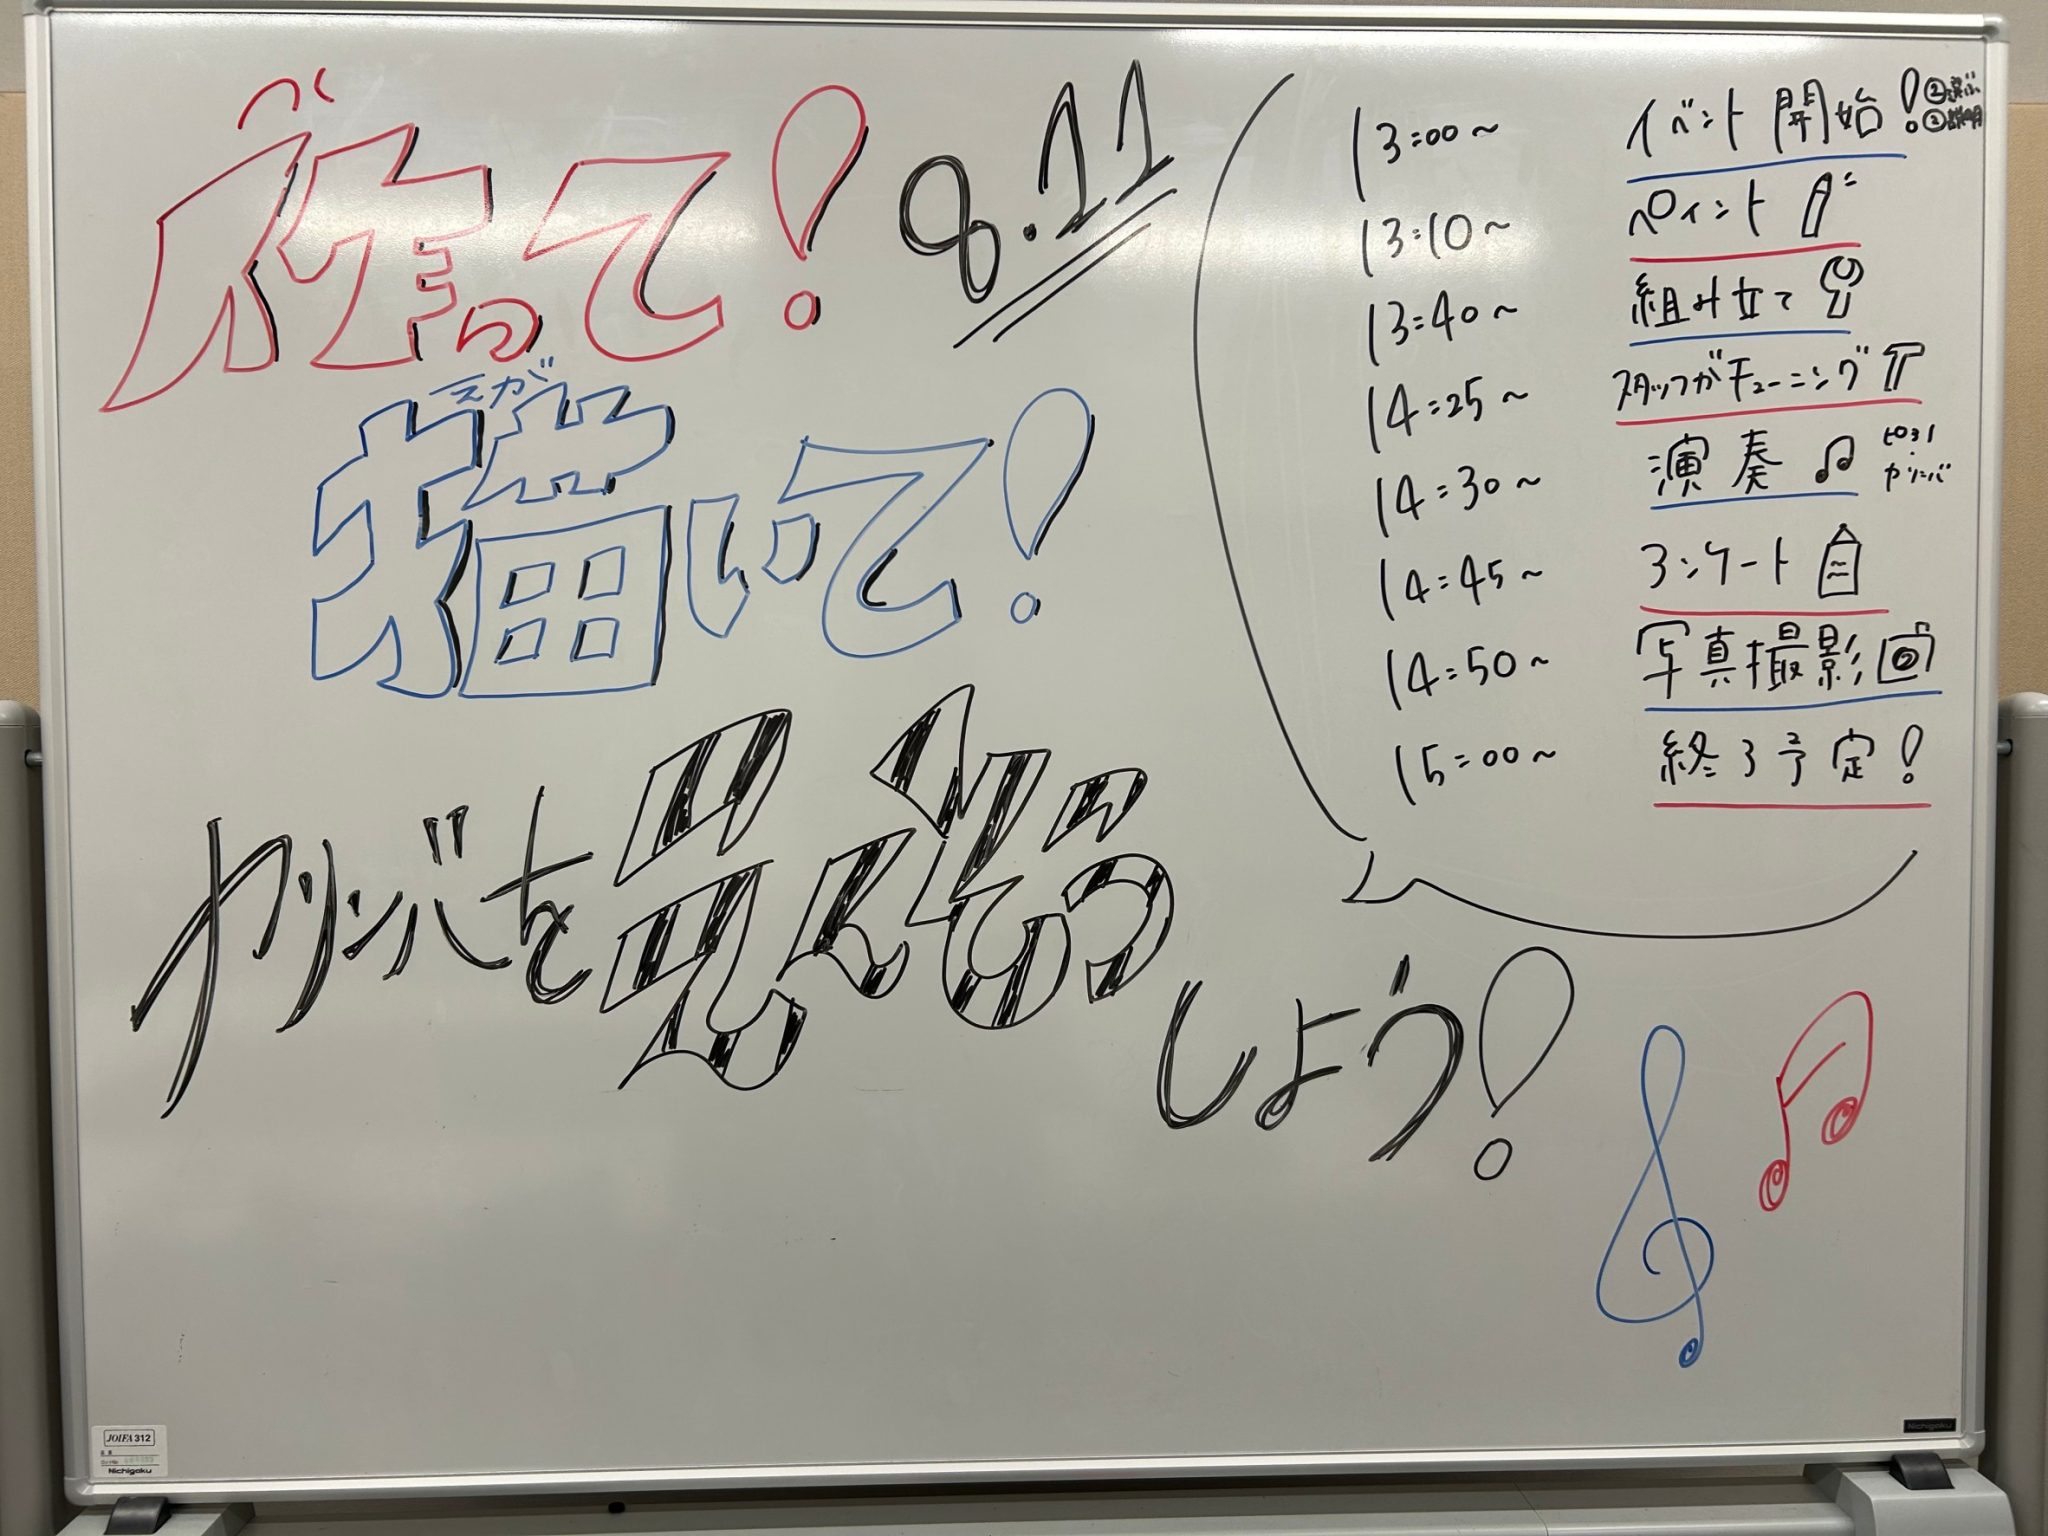 つく
作って!
8.11
えが
描いて!
カリンバを
えんそう
しょう!
13:00~ イベント開始!
13:10~ ペイント
13:40~ 組み立て
14:25~ スタッフがチューニング
14:30~ 演奏
カリンバ
14:45~ アンケート
14:50~ 写真撮影
15:00~ 終了予定!
JOIFA 312
Nichigaku
Nichigaku